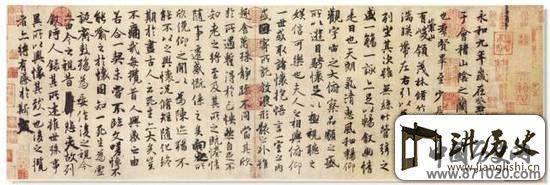 永和九年歲在癸
于會稽山陰之蘭
群賢畢至少長
崇山
峻領茂林脩竹
湍暎帶左右引以
列坐其次雖無絲竹管弦之
盛一觴一詠亦足以暢敘幽情
是日也天朗氣清惠風和暢仰
觀宇宙之大俯察品類之盛
所以遊目騁懷足以極視聽之
娛信可樂也夫人之相與俯仰
一世或取諸懷抱悟言一室之內
或因寄所託放浪形骸之外雖
趣舍萬殊靜躁不同當其欣
於所遇蹔得於己怏然自足不
知老之將至及其所之既惓情
隨事遷感慨係之矣向之所
欣俛仰之間以為陳跡猶不
能不以之興懷況脩短隨化終
期於盡古人云死生亦大矣豈
不痛哉每攬昔人興感之由
若合一契未嘗不臨文嗟悼不
能喻之於懷固知一死生為虛
誕齊彭殤為妄作後之視今
亦由今之視昔悲夫故列
敘時人錄其所述雖世殊事
異所以興懷其致一也後之攬
者亦將有感於斯文
讲历史
www.jianglishi.cn
www.871020.com